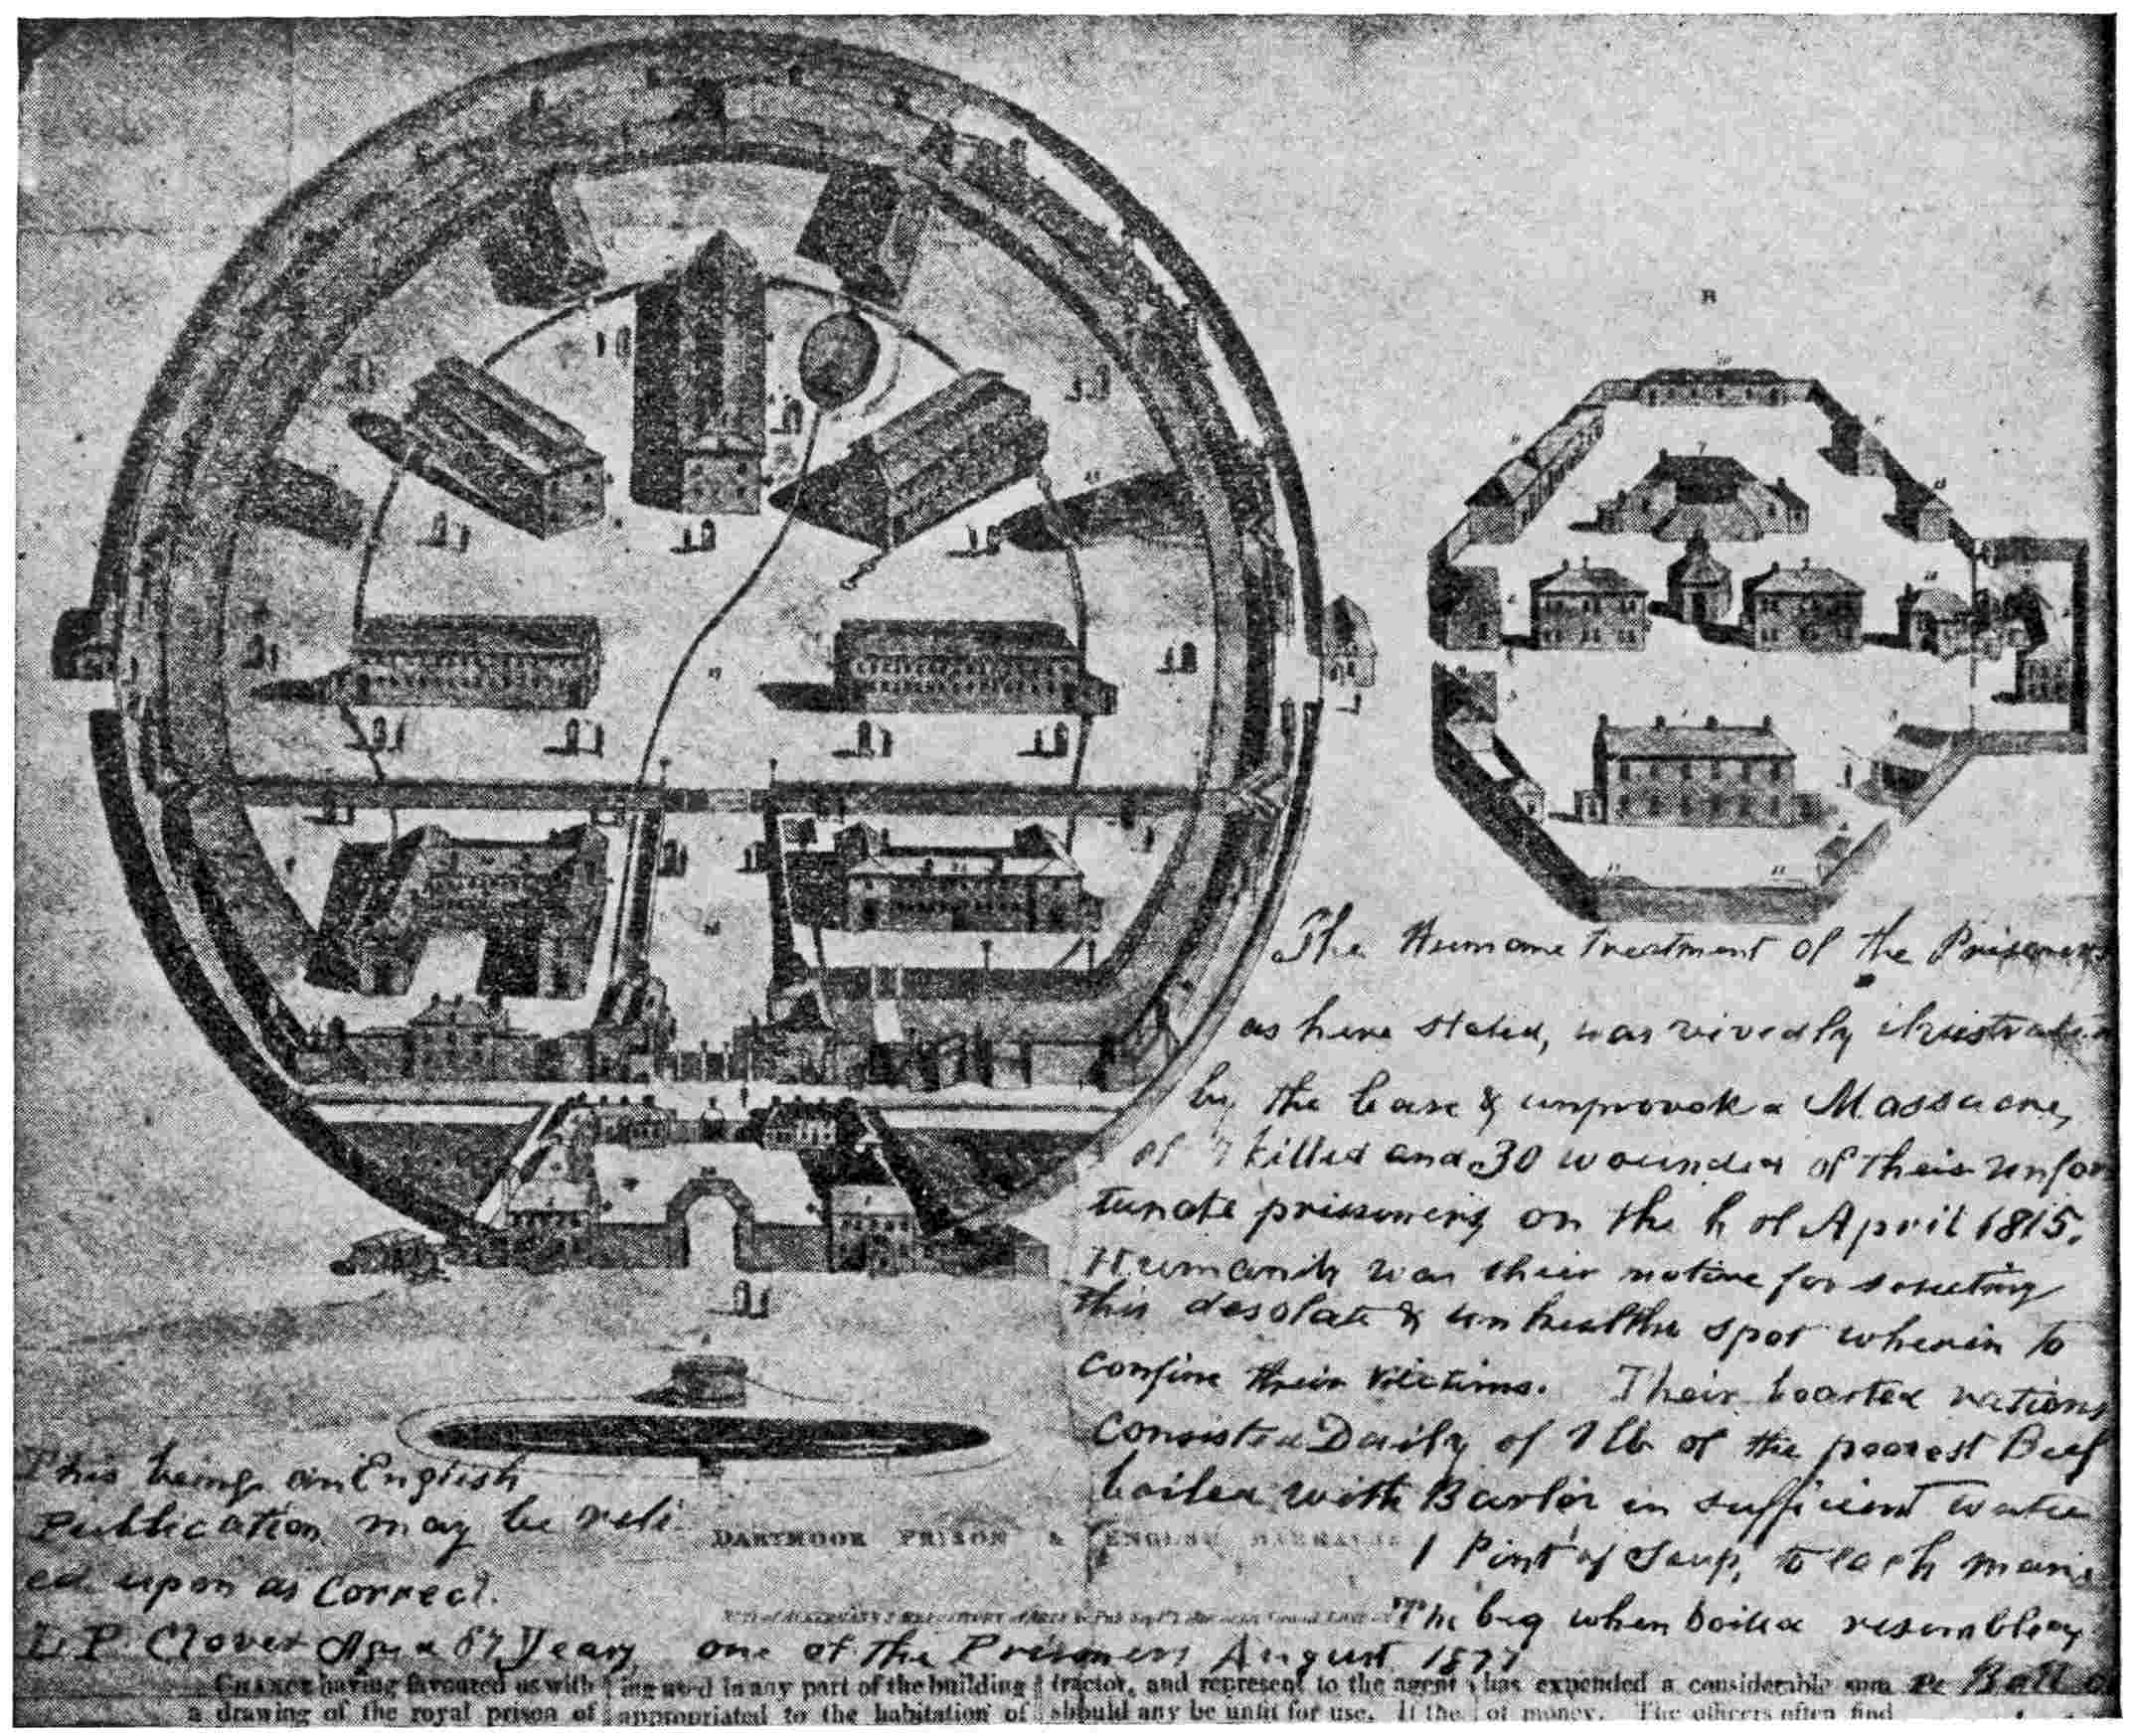 The Humane treatment of the Prisoners
as here stated, was vividly illustrated
by the base & unprovok d Massacre,
of 7 killed and 30 wounded of their unfor
tunate prisoners on the 6 of April 1815.
Humanity was their motive for selecting
this desolate & unhealthy spot wherein to
confine their Victims. Their boasted rations
Consisted Daily of 1 lb of the poorest Beef
boiled with Barley in sufficient water
1 Pint of Soup, to each man
The beg when boiled resembley
Ball
This being an English
Publication may be reli
ed upon as Correct.
L P Clover Aged 87 Years one of the Prisoners August 1877
DARTMOOR PRISON & ENGLISH
ACKERMANN'S REPOSITORY of ARTS &c Pub
CHANCE having favoured us with
a drawing of the royal prison of
ing used in any part of the building
appropriated to the habitation of
tractor, and represent to the agent
should any be unfit for use. If the
has expended a considerable sum
of money. The officers often find